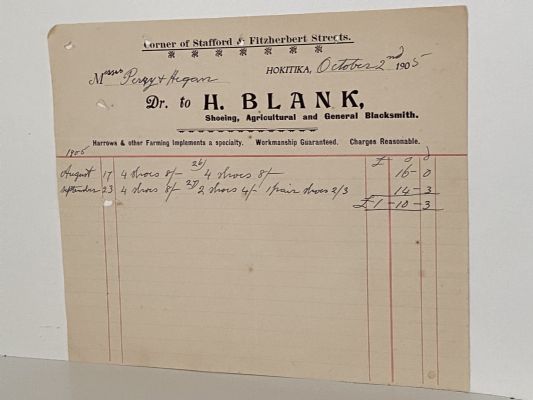 Corner of Stafford & Fitzherbert Streets.
HOKITIKA, October 2nd 1905
Messrs Perry & Hegan
Dr. to H. BLANK,
Shoeing, Agricultural and General Blacksmith.
Harrows & other Farming Implements a specialty. Workmanship Guaranteed. Charges Reasonable.
1905 £ s d
August 17 4 shoes 8/- 26/ 4 shoes 8/- 16-0
September 23 4 shoes 8/- 27/ 2 shoes 4/- 1 pair shoes 2/3 14-3
£1-10-3